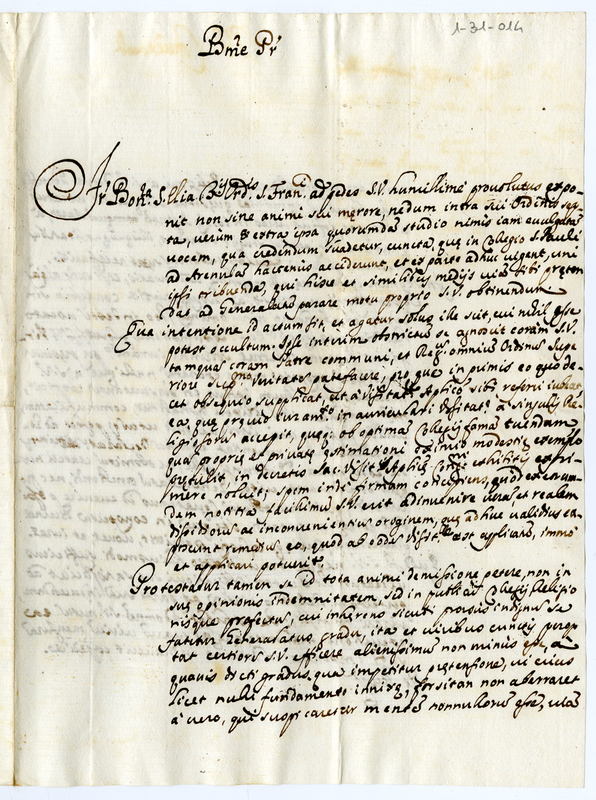 1-31-014
Bm̃e Pr̃
Fr Bon.ra S. Elia S. Fran.ci ad pedes S.V. humillimè provolutus expo-
nit non sine animi sui męrore, nedum intra sui Ordinis sep-
ta, verùm & extra ipsa quorumdam studio nimis iam evulgata
vocem, qua credendum suadetur, cuncta, quę in Collegio S. Pauli
ad Arenulas hactenùs acciderunt, et ex parte adhuc vigent, uni
ipsi tribuenda, qui hisce et similibus medijs viam sibi pręten
dat ad Generalatum parare motu proprio S.V. obtinendum.
Qua intentione id actum sit, et agatur solus ille scit, cui nihil esse
potest occultum. Ipse interim obstrictus se agnovit coram S.V.
tamquam coram Patre communi, et omnium Ordinum Supe
riore veritatem patefacere, pro qua in primis eo quo de-
cet obsequio supplicat, ut à Aplico sibi referri iubeat,
ea, quę in auriculari à singulis Re-
ligiosis accepit, quęq; ob optimam Collegij famam tuendam,
quam proprię et privatę ęstimationi eximio modestię exemplo
pętulit, in decretis Sac. Visit. Aplicę exhibitis expri-
mere noluit; spem inde firmam concipiens, quod
dam notitia facillimùm S.V. erit adinvenire veram, et realem
dissidiorum ac inconvenientium originem, quę adhuc validius ea
poscunt remedium eo, quod ab applicari, immò
et applicari potuerit.
Protestatur tamen se id tota animi demissione petere, non in
suę opinionis indemnitatem, sed in publicum Collegij Religio
nisque profectum, cui inhęrens sicuti prorsus indignum se
fatitur Generalatus gradu, ita et cunctis perop
tat certiorem S.V. efficere alienissimum non minùs esse à
quavis dicti gradus, quę impetitur pretensione, ui cuius
licet nulli fundamento innixę, forsitan non aberraret
à vero, qui suspicaretur mentem nonnullorum esse, viam